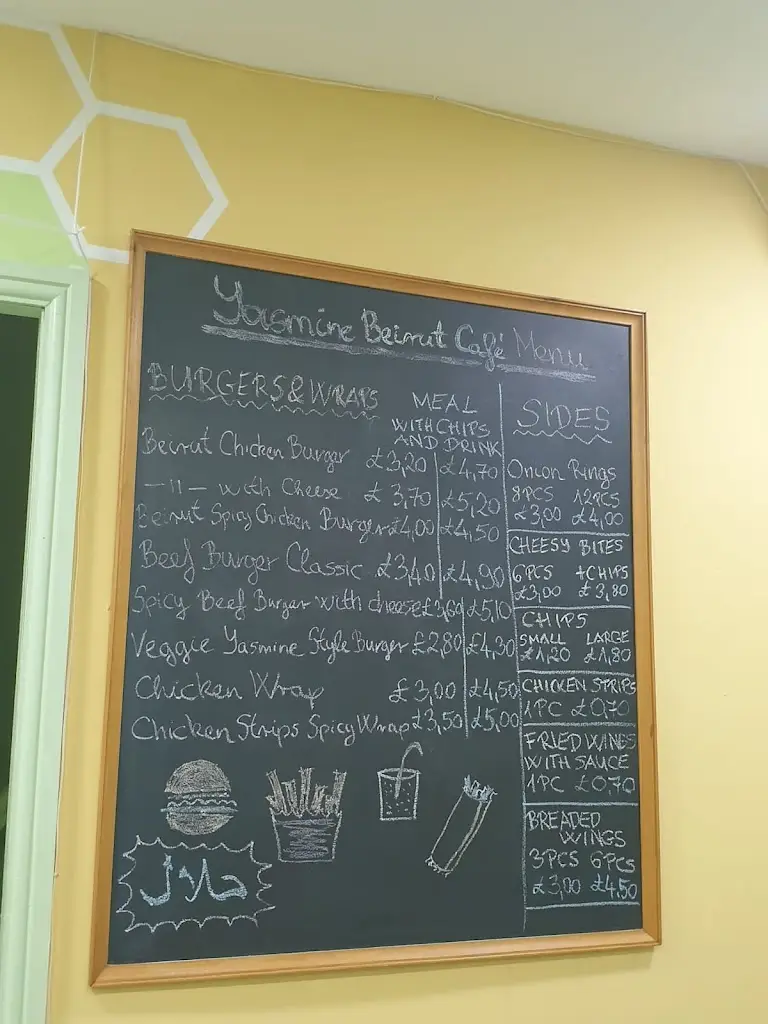 Yasmine Beirut Café Menu
BURGERS&WRAPS
MEAL
WITH CHIPS
AND DRINK
Beirut Chicken Burger £3,20 £4,70
—11— with Cheese £3,70 £5,20
Beirut Spicy Chicken Burger £4,00 £4,50
Beef Burger Classic £3,40 £4,90
Spicy Beef Burger with cheese £3,60 £5,10
Veggie Yasmine Style Burger £2,80 £4,30
Chicken Wrap £3,00 £4,50
Chicken Strips Spicy Wrap £3,50 £5,00
حلال
SIDES
Onion Rings
8PCS 12PCS
£3,00 £4,00
CHEESY BITES
6PCS +CHIPS
£3,00 £3,80
CHIPS
SMALL LARGE
£1,20 £1,80
CHICKEN STRIPS
1PC £0,70
FRIED WINGS
WITH SAUCE
1PC £0,70
BREADED
WINGS
3PCS 6PCS
£3,00 £4,50